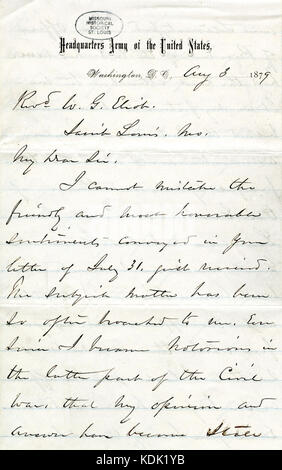 MISSOURI
HISTORICAL
SOCIETY
ST. LOUIS
Headquarters Army of the United States,
Washington, D.C., Aug 3 1879
Revd. W. G. Eliot.
Saint Louis, Mo.
My Dear Sir.
I cannot mistake the
friendly and most honorable
sentiments conveyed in your
letter of July 31, just received.
The subject matter has been
so often broached to me, Ever
since I became notorious in
the latter part of the Civil
War, that my opinion and
answer have become Stale
alamy
Image ID: KDK1YB
www.alamy.com